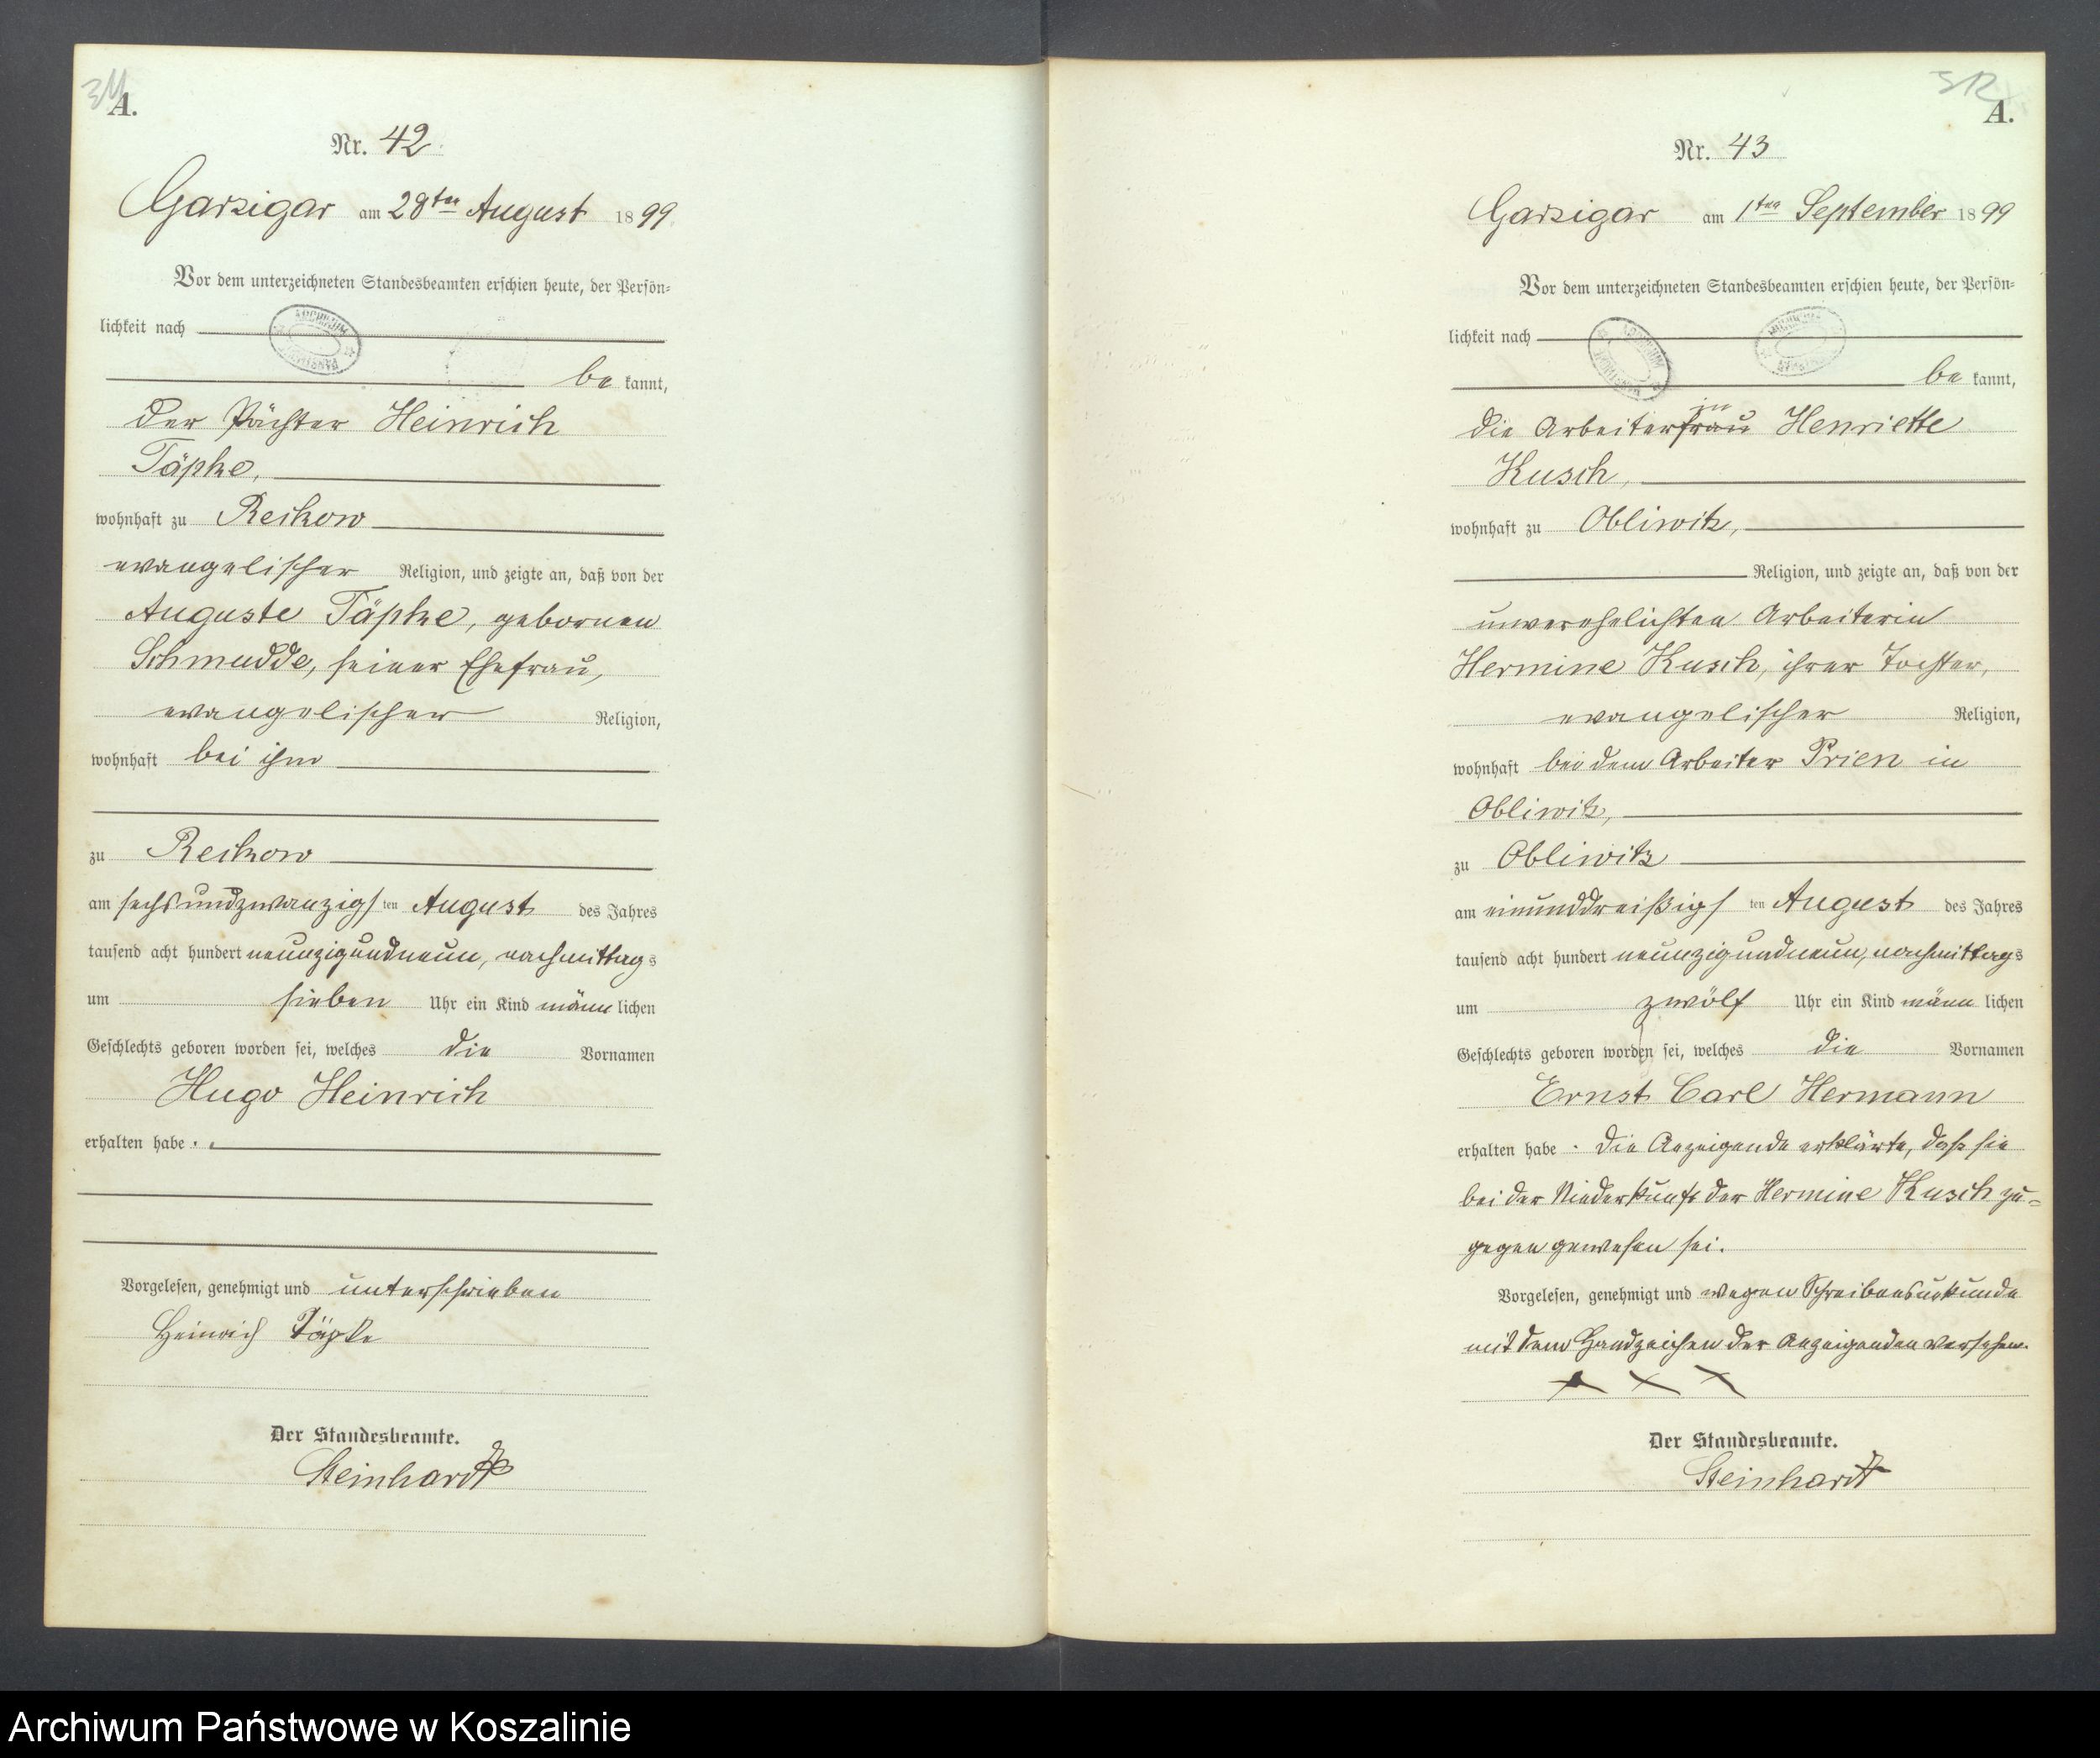 311
A.
Nr. 42.
Garzigar am 28ten August 1899.
Vor dem unterzeichneten Standesbeamten erschien heute, der Persön-
lichkeit nach
ARCHIWUM
be kannt,
der Pächter Heinrich
Täpke,
wohnhaft zu Reckow
evangelischer Religion, und zeigte an, daß von der
Auguste Täpke, gebornen
Schmudde, seiner Ehefrau,
evangelischer Religion,
wohnhaft bei ihm
zu Reckow
am sechsundzwanzigsten August des Jahres
tausend acht hundert neunzigundneun, nachmittags
um sieben Uhr ein Kind männlichen
Geschlechts geboren worden sei, welches die Vornamen
Hugo Heinrich
erhalten habe.
Vorgelesen, genehmigt und unterschrieben
Heinrich Täpke
Der Standesbeamte.
Steinhardt
312
A.
Nr. 43
Garzigar am 1ten September 1899
Vor dem unterzeichneten Standesbeamten erschien heute, der Persön-
lichkeit nach
ARCHIWUM
be kannt,
in
die Arbeiterfrau Henriette
Kusch,
wohnhaft zu Obliwitz,
Religion, und zeigte an, daß von der
unverehelichten Arbeiterin
Hermine Kusch, ihrer Tochter,
evangelischer Religion,
wohnhaft bei dem Arbeiter Prien in
Obliwitz,
zu Obliwitz
am einunddreißigsten August des Jahres
tausend acht hundert neunzigundneun, nachmittags
um zwölf Uhr ein Kind männlichen
Geschlechts geboren worden sei, welches die Vornamen
Ernst Carl Hermann
erhalten habe. Die Anzeigende erklärte, daß sie
bei der Niederkunft der Hermine Kusch zu-
gegen gewesen sei.
Vorgelesen, genehmigt und wegen Schreibensunkunde
mit dem Handzeichen der Anzeigenden versehen.
+ + +
Der Standesbeamte.
Steinhardt
Archiwum Państwowe w Koszalinie